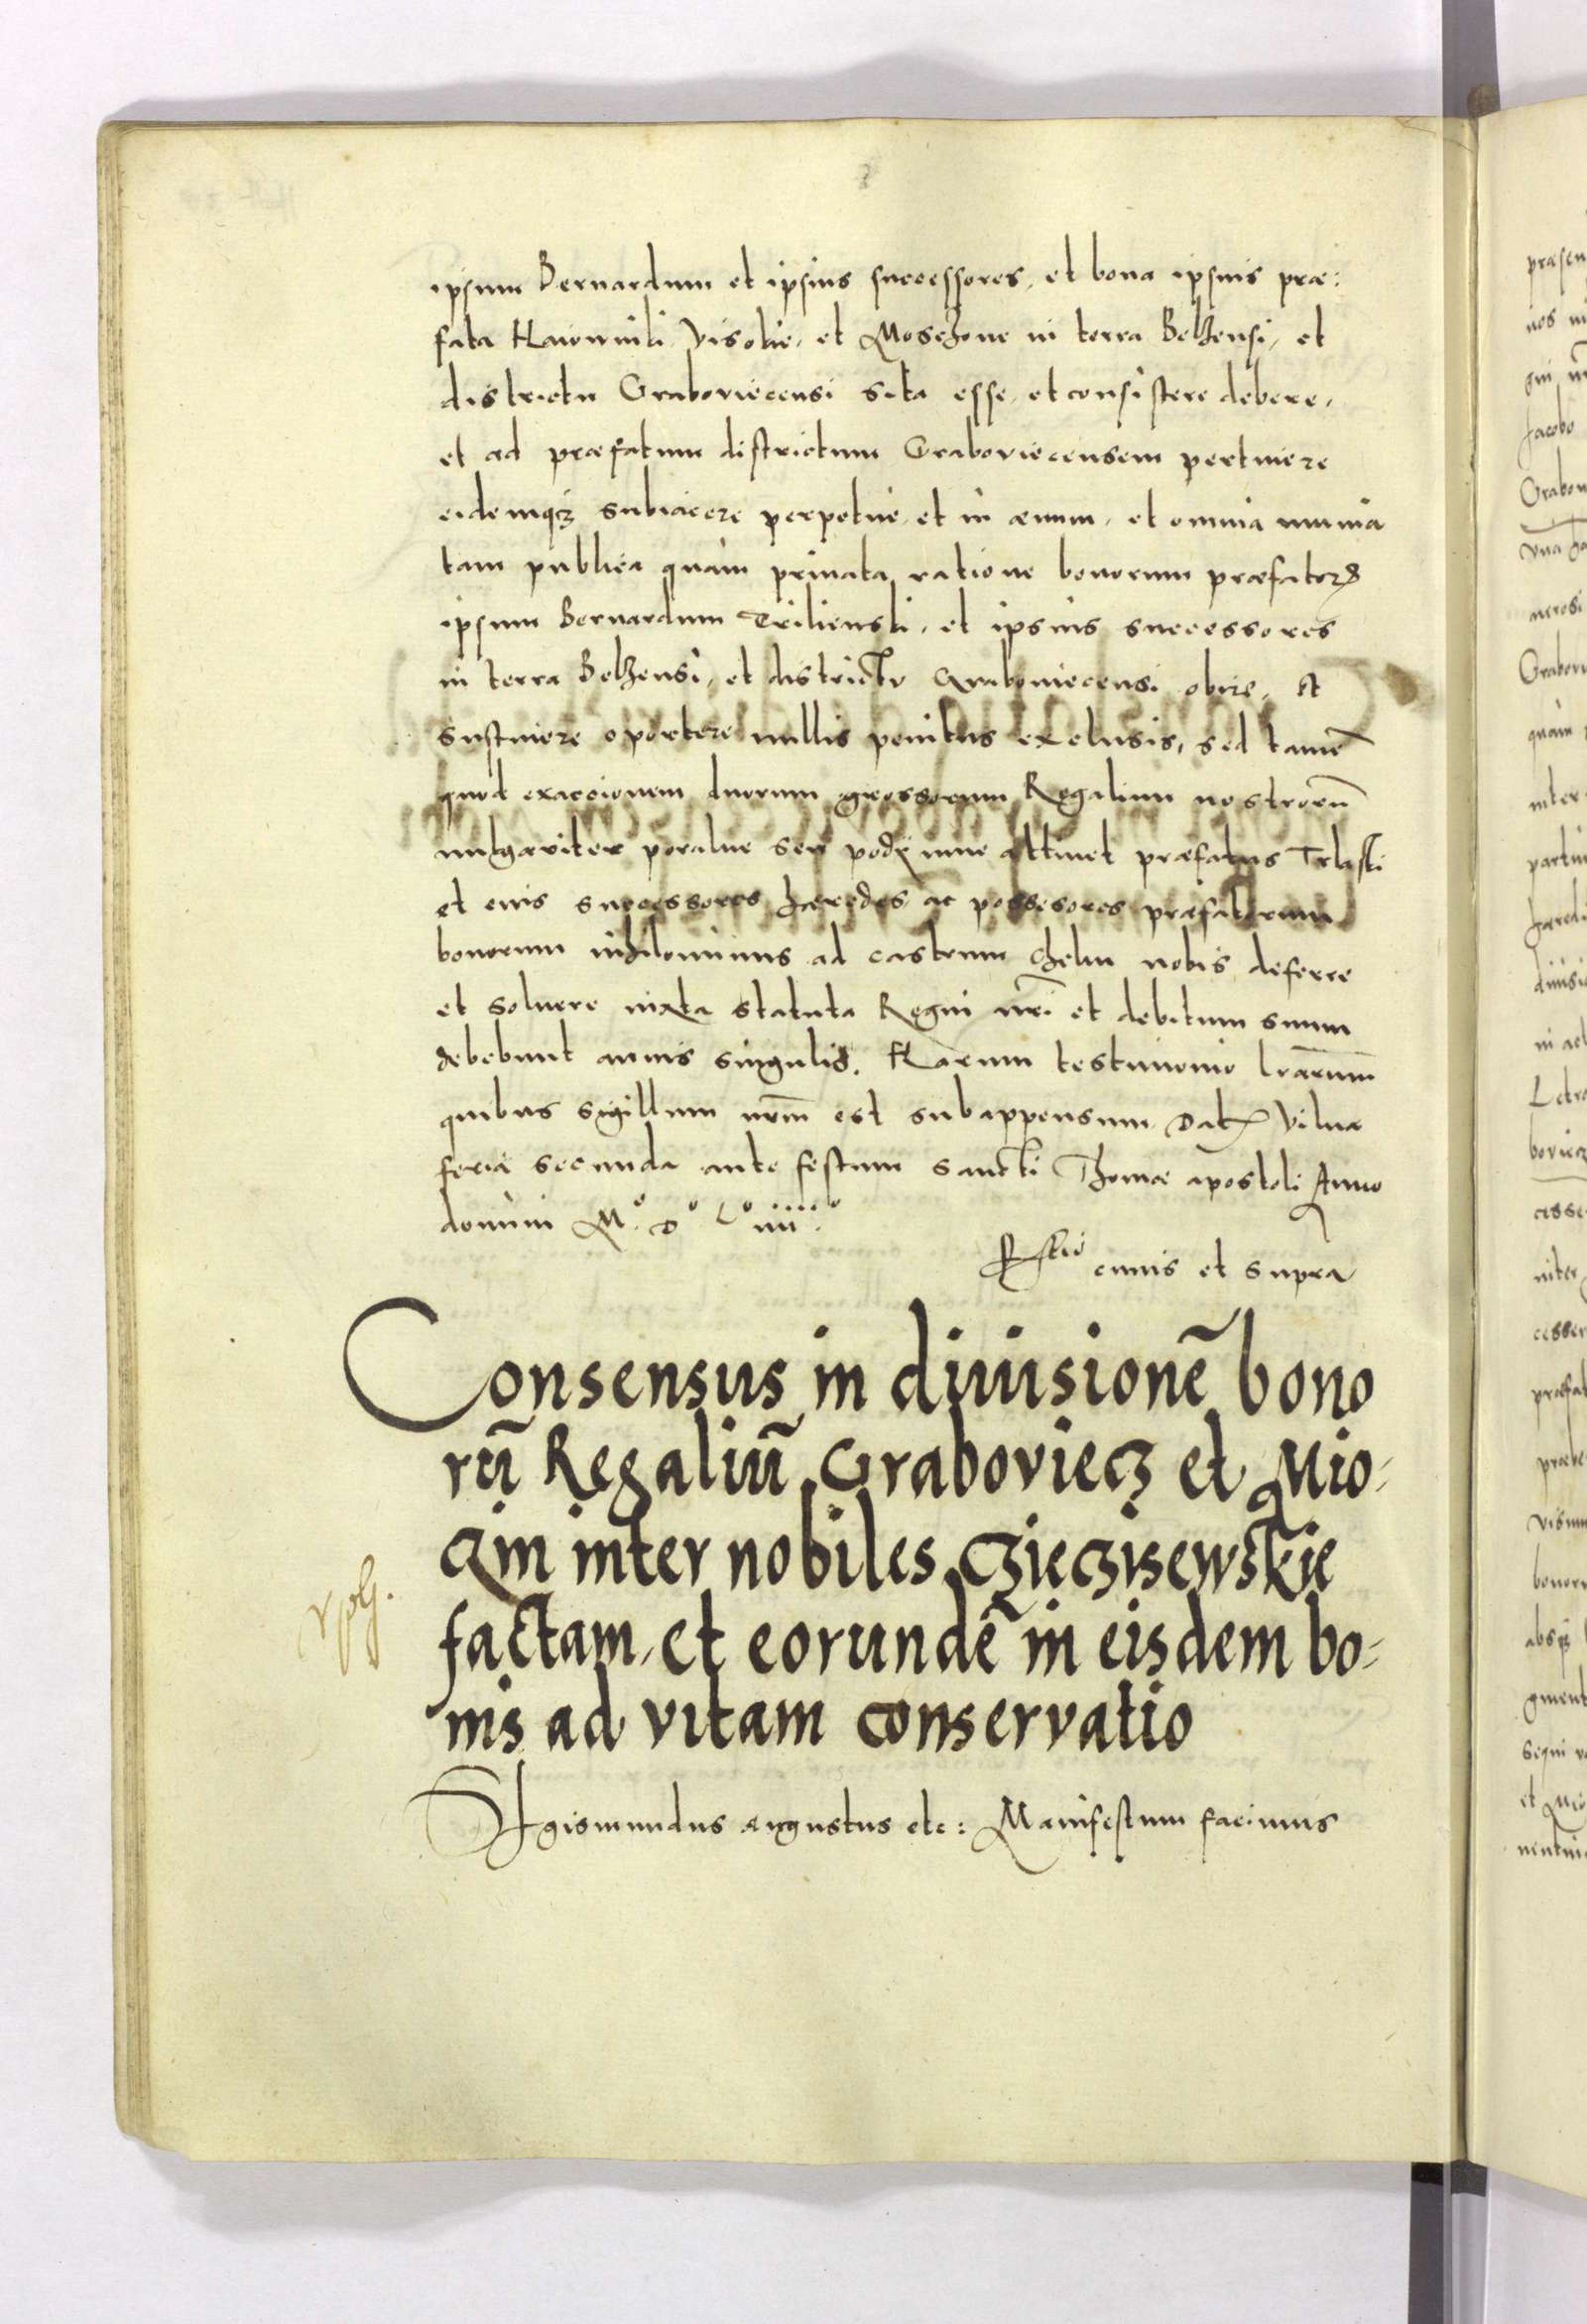 ipsum Bernardum et ipsius successores, et bona ipsius præ:
fata Haiowniki Visokie, et Moschone in terra Belzensi, et
districtu Graboviecensi sita esse, et consistere debere,
et ad præfatum districtum Graboviecensem pertinere
eidemq₃ subiacere perpetuè, et in ævum, et omnia munia
tam publica quàm priuata ratione bonorum præfator₄
ipsum Bernardum Trilienski, et ipsius successores
in terra Belzensi, et districtv Grabouiecensi obire, et
sustinere oportere nullis penitus exclusis, sed tamē
quod exaccionem duorum grossorum Regalium nostrorū
uulgariter poralne seu attinet præfatus
et eius successores hæredes ac possesores præfatorum
bonorum nihilominus ad castrum Chelm nobis deferre
et soluere iuxta statuta Regni nrī et debitum suum
debebunt annis singulis. Harum testimonio lrārum
quibus sigillum nrm̄ est subappensum. Dat Vilnæ
feria secunda ante festum sancti Thomæ apostoli Anno
domini M.º Dº Lº iiiiº.
eiuus et supra
Consensus in diuisionē bono
rū Regaliū Graboviecz et Mio-
cẜin inter nobiles Czieczisewskie
factam, et eorundē in eisdem bo-
nis ad vitam conservatio
Sigismundus augustus etc: Manifestum facimus